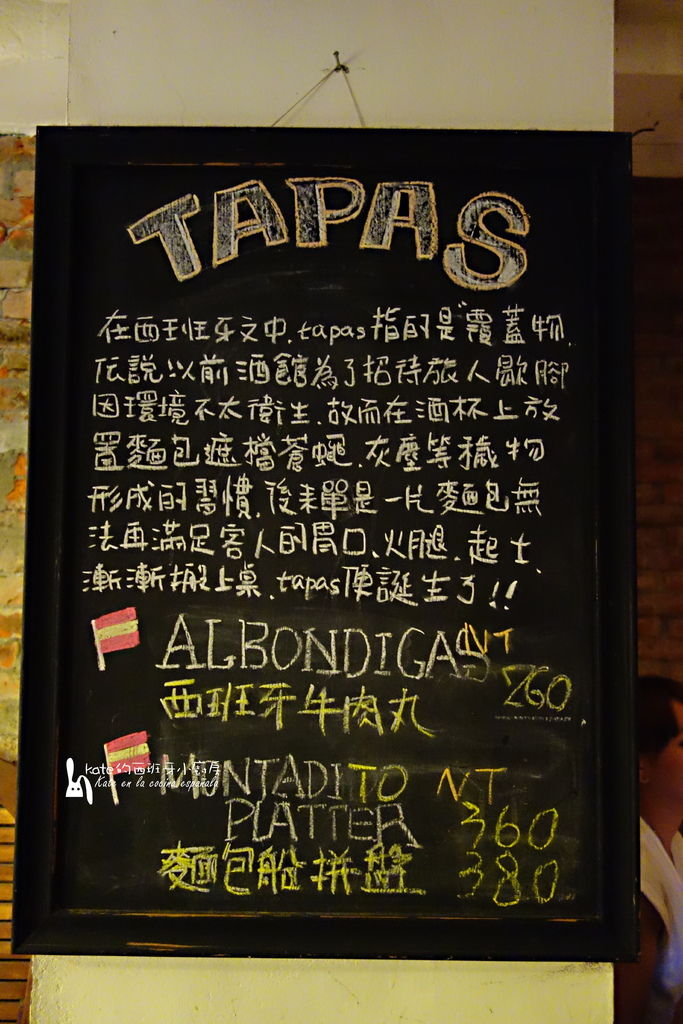 TAPAS
在西班牙文中.tapas指的是"覆蓋物.
伝說以前酒館為了招待旅人歇腳
因環境不太衛生.故而在酒杯上放
置麵包遮擋蒼蠅.灰塵等穢物
形成的習慣.後來單是一片麵包無
法再滿足客人的胃口、火腿.起士.
漸漸搬上桌.tapas便誕生了!!
ALBONDIGAS NT
西班牙牛肉丸 260
kate的西班牙小廚房
Kate en la cocina española
MONTADITO NT
PLATTER 360
麵包船拼盤 380